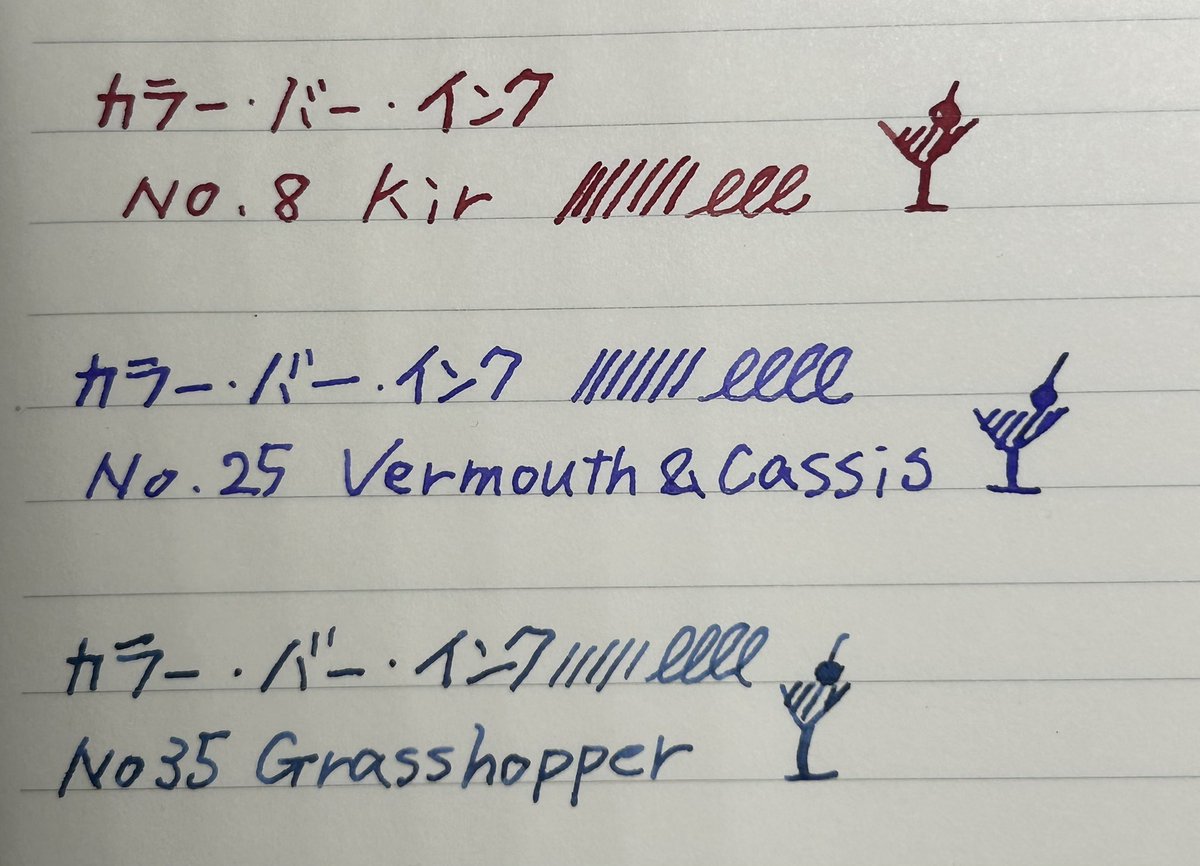 カラー・バー・インク
No.8 Kir
カラー・バー・インク
No.25 Vermouth & Cassis
カラー・バー・インク
No35 Grasshopper